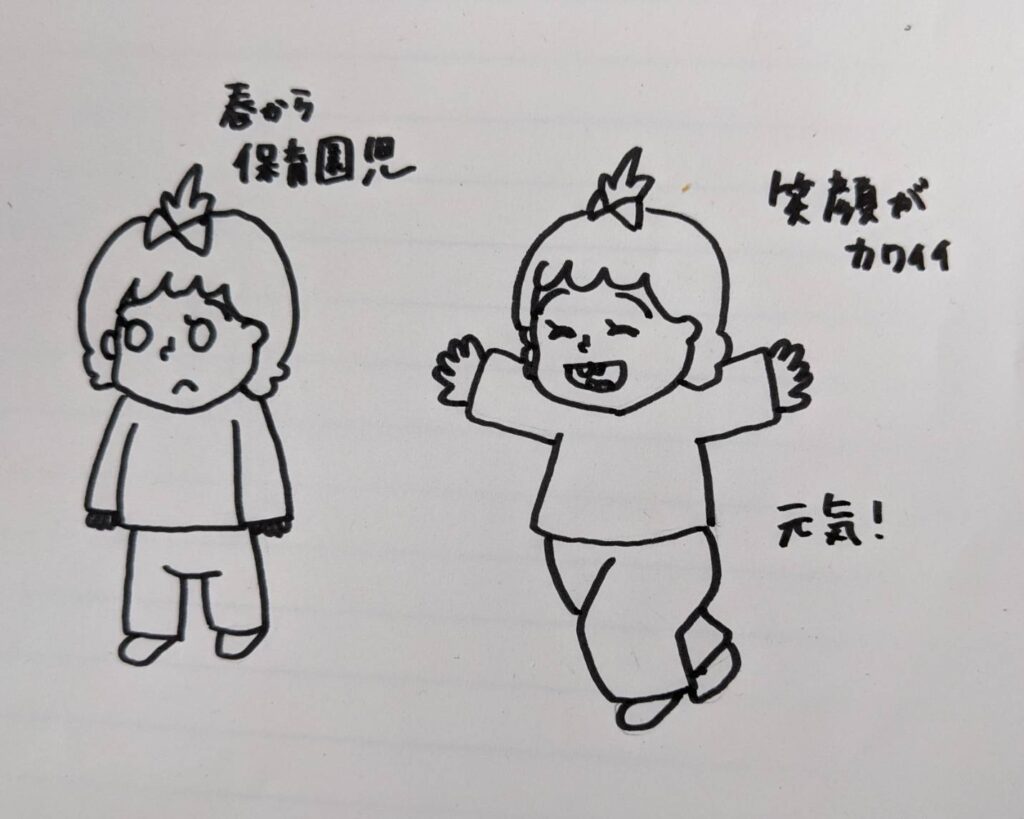 春から
保育園児
笑顔が
カワイイ
元気！